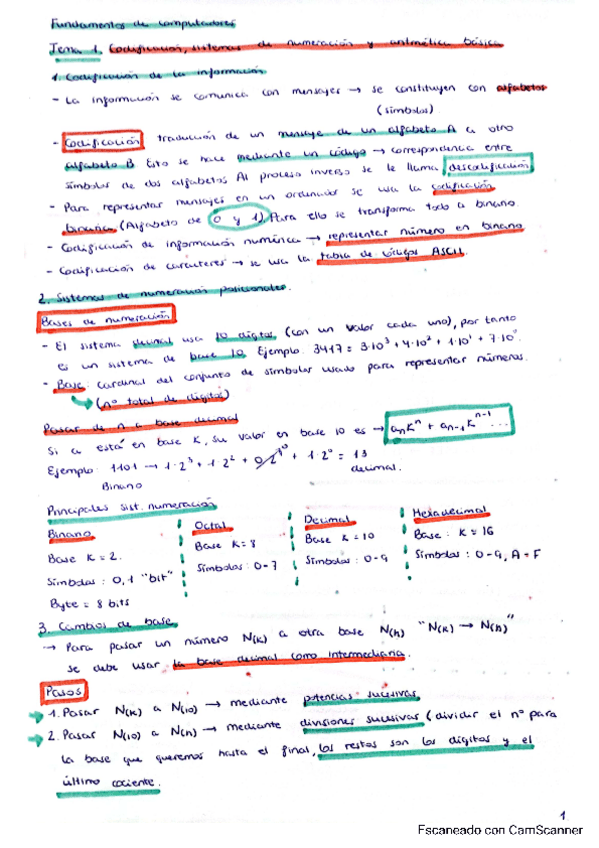 Fundamentos de computadores
Tema 1. Codificación, sistemas de numeración y aritmética básica
1. Codificación de la información
- La información se comunica con mensajes → se constituyen con alfabetos
(símbolos)
- Codificación traducción de un mensaje de un alfabeto A a otro
alfabeto B. Esto se hace mediante un código → correspondencia entre
símbolos de dos alfabetos. Al proceso inverso se le llama descodificación
- Para representar mensajes en un ordenador se usa la codificación
binaria (Alfabeto de 0 y 1). Para ello se transforma todo a binario
- Codificación de información numérica → representar número en binario
- Codificación de caracteres → se usa la tabla de códigos ASCII.
2. Sistemas de numeración posicionales.
Bases de numeración
- El sistema decimal usa 10 dígitos (con un valor cada uno), por tanto
es un sistema de base 10. Ejemplo: 3417 = 3·10³ + 4·10² + 1·10¹ + 7·10⁰
- Base: cardinal del conjunto de símbolos usado para representar números.
(nº total de dígitos)
Pasar de n a base decimal
Si a está en base K, su valor en base 10 es → aₙKⁿ + aₙ₋₁Kⁿ⁻¹ ...
Ejemplo: 1101 → 1·2³ + 1·2² + 0·2¹ + 1·2⁰ = 13
Binario decimal.
Principales sist. numeración
Binario Octal Decimal Hexadecimal
Base K = 2. Base K = 8 Base K = 10 Base: K = 16
Símbolos: 0, 1 "bit" Símbolos: 0-7 Símbolos: 0-9 Símbolos: 0-9, A-F
Byte = 8 bits
3. Cambios de base
→ Para pasar un número N(K) a otra base N(h) "N(K) → N(h)"
se debe usar la base decimal como intermediaria.
Pasos
1. Pasar N(K) a N(10) → mediante potencias sucesivas
2. Pasar N(10) a N(n) → mediante divisiones sucesivas (dividir el nº para
la base que queremos hasta el final, los restos son los dígitos y el
último cociente.
1
Escaneado con CamScanner